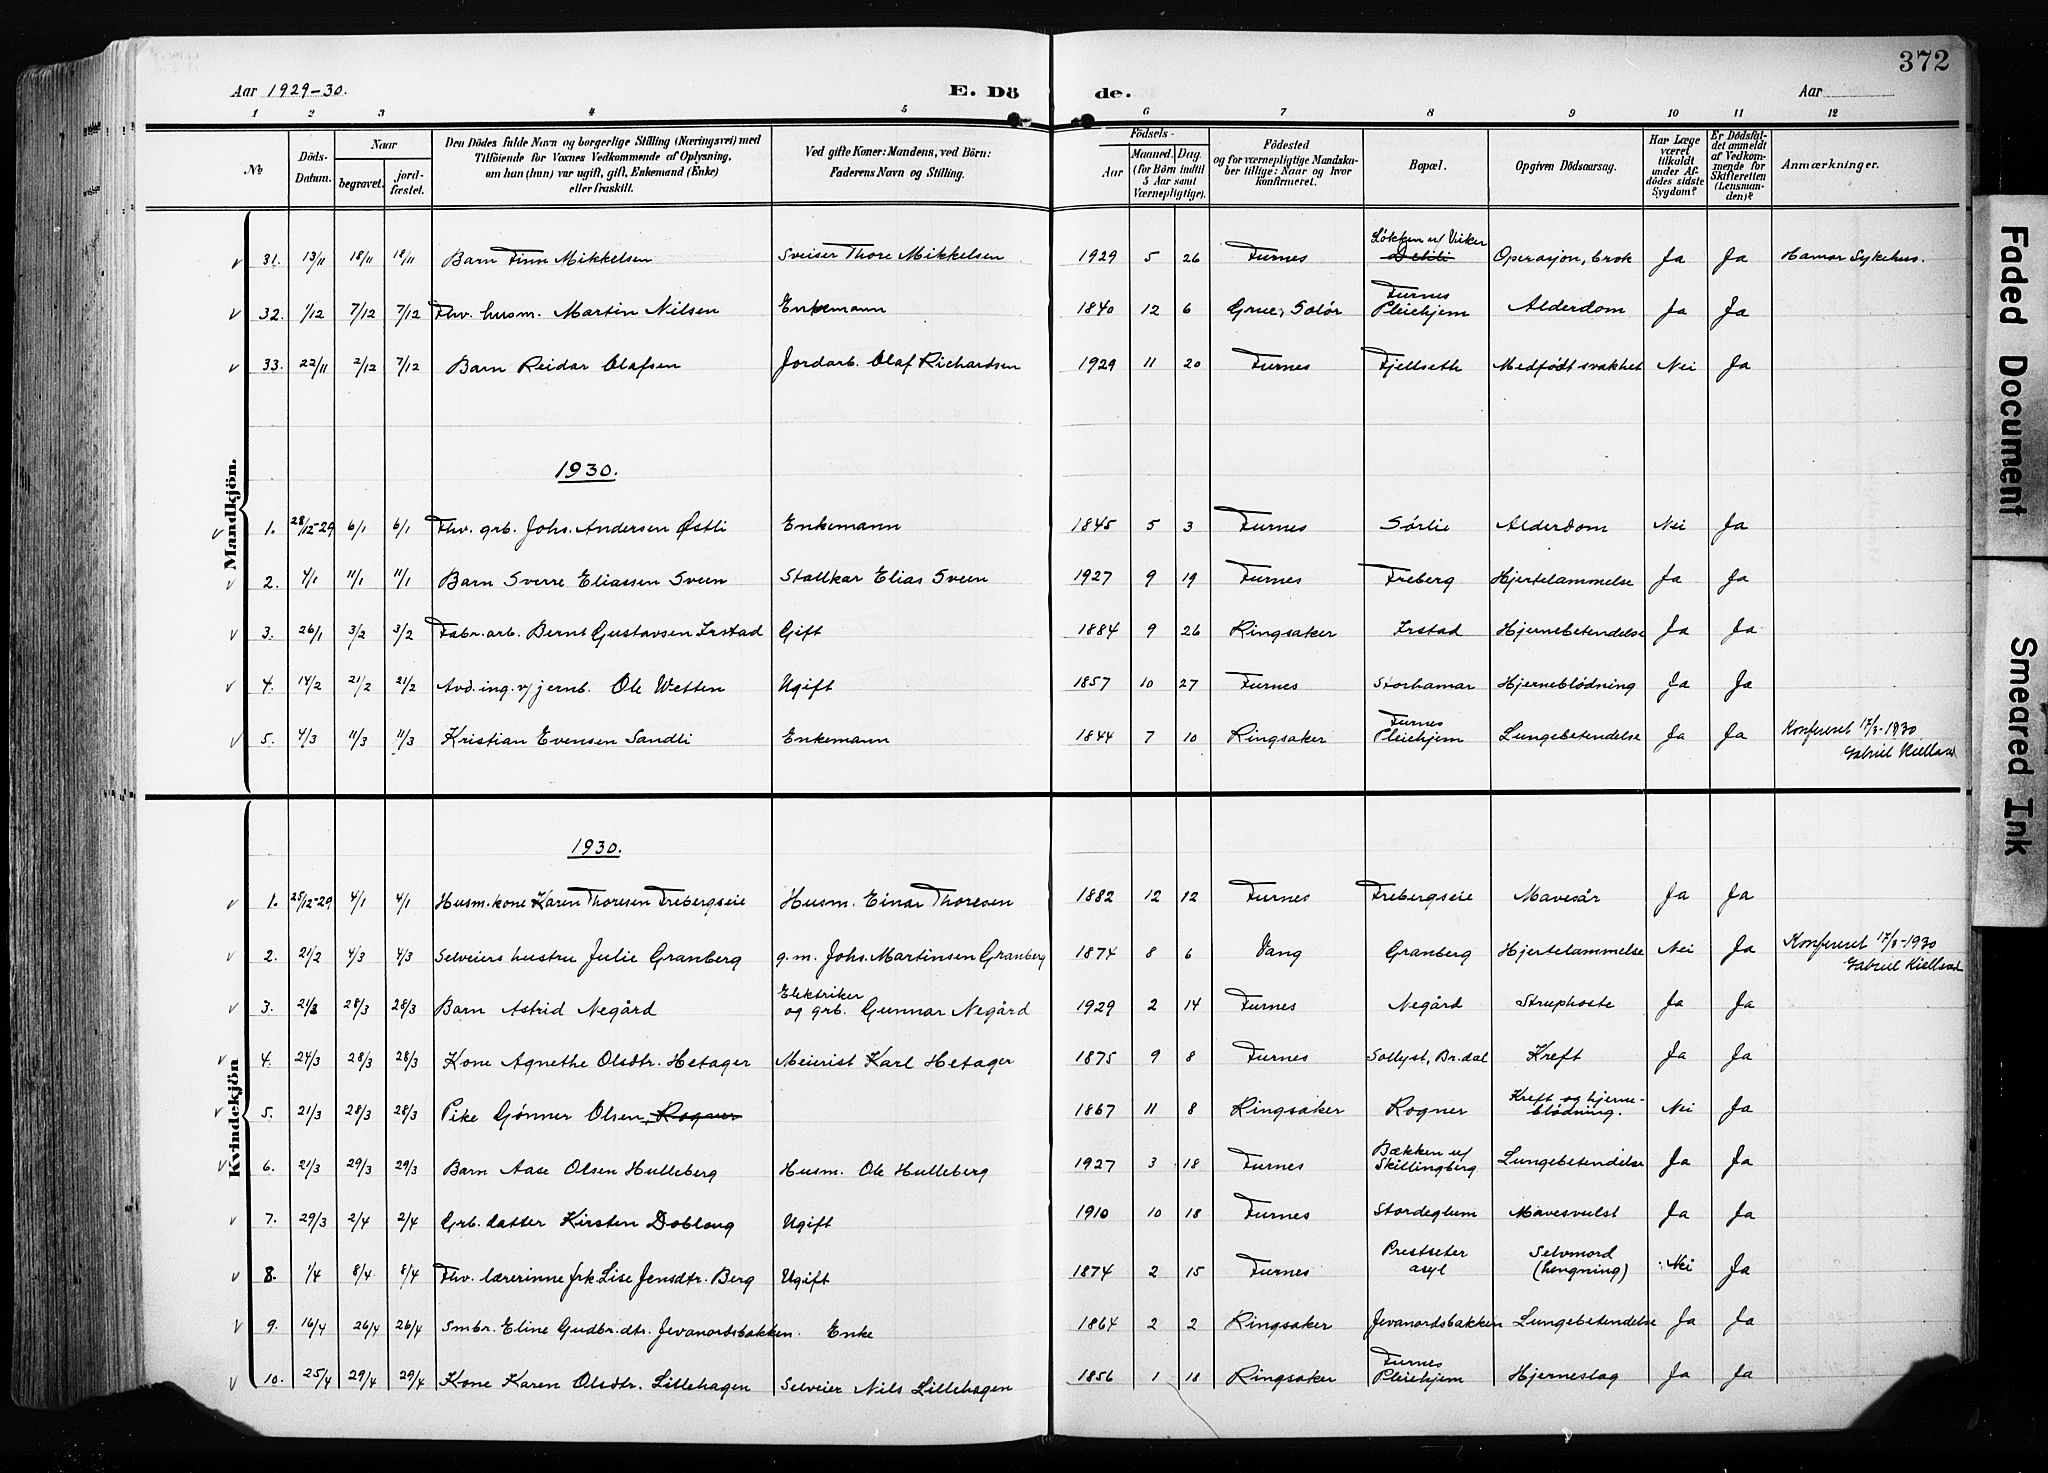 372
Aar 1929-30. E. Dö de. Aar
1 2 3 4 5 6 7 8 9 10 11 12
No
Döds-Datum.
Naar
begravet.
jord-fæstet.
Den Dödes fulde Navn og borgerlige Stilling (Næringsvei) med
Tilföiende for Voxnes Vedkommende af Oplysning,
om han (hun) var ugift, gift, Enkemand (Enke)
eller fraskilt.
Ved gifte Koner: Mandens, ved Börn:
Faderens Navn og Stilling.
Födsels-
Aar
Maaned. Dag.
(for Börn indtil
5 Aar samt
Værnepligtige).
Födested
og for værnepligtige Mandska-
ber tillige: Naar og hvor
konfirmeret.
Bopæl.
Opgiven Dödsaarsag.
Har Læge
været
tilkaldt
under Af-
dödes sidste
Sygdom?
Er Dödsfal-
det anmeldt
af Vedkom-
mende for
Skifteretten
(Lensman-
den)?
Anmærkninger.
Mandkjön.
v 31. 13/11 18/11 18/11 Barn Finn Mikkelsen Sveiser Thore Mikkelsen 1929 5 26 Furnes Løkken u/ Viker Operasjon, brok Ja Ja Hamar Sykehus.
v 32. 1/12 7/12 7/12 Fhv. husm. Martin Nilsen Enkemann 1840 12 6 Grue, Solør Furnes Pleiehjem Alderdom Ja Ja
v 33. 22/11 2/12 7/12 Barn Reidar Olafsen Jordarb. Olaf Richardsen 1929 11 20 Furnes Fjellseth Medfødt svakhet Nei Ja
1930.
v 1. 28/12-29 6/1 6/1 Fhv. grb. Johs. Andersen Østli Enkemann 1845 5 3 Furnes Sørlie Alderdom Nei Ja
v 2. 4/1 11/1 11/1 Barn Sverre Eliassen Sveen Stallkar Elias Sveen 1927 9 19 Furnes Freberg Hjertelammelse Ja Ja
v 3. 26/1 3/2 3/2 Fabr. arb. Bernt Gustavsen Irstad Gift 1884 9 26 Ringsaker Irstad Hjernebetendelse Ja Ja
v 4. 14/2 21/2 21/2 Avd. ing. v/ jernb. Ole Wetten Ugift 1857 10 27 Furnes Storhamar Hjerneblødning Ja Ja
v 5. 4/3 11/3 11/3 Kristian Evensen Sandli Enkemann 1844 7 10 Ringsaker Furnes Pleiehjem Lungebetendelse Ja Ja Konfereret 17/3-1930. Gabriel Kielland
Kvindekjön
1930.
v 1. 25/12-29 4/1 4/1 Husm. kone Karen Thoresen Frebergseie Husm. Einar Thoresen 1882 12 12 Furnes Frebergseie Mavesår Ja Ja
v 2. 21/2 4/3 4/3 Selveiers hustru Julie Granberg g. m. Johs. Martinsen Granberg 1874 8 6 Vang Granberg Hjertelammelse Nei Ja Konfereret 17/3-1930 Gabriel Kielland
v 3. 21/3 28/3 28/3 Barn Astrid Negård Elektriker og grb. Gunnar Negård 1929 2 14 Furnes Negård Struphoste Ja Ja
v 4. 24/3 28/3 28/3 Kone Agnethe Olsdtr. Hetager Meierist Karl Hetager 1875 9 8 Furnes Sollyst, Br.dal Kreft Ja Ja
v 5. 21/3 28/3 28/3 Pike Gønner Olsen, Rogner 1867 11 8 Ringsaker Rogner Kreft og hjerne-blødning. Nei Ja
v 6. 21/3 29/3 29/3 Barn Aase Olsen Hulleberg Husm. Ole Hulleberg 1927 3 18 Furnes Bækken u/ Skillingberg Lungebetendelse Ja Ja
v 7. 29/3 2/4 2/4 Grb. datter Kirsten Dobloug Ugift 1910 10 18 Furnes Stordeglum Mavesvulst Ja Ja
v 8. 1/4 8/4 8/4 Fhv. lærerinne frk. Lise Jensdtr. Berg Ugift 1874 2 15 Furnes Prestseter asyl Selvmord (hengning) Nei Ja
v 9. 16/4 26/4 26/4 Smbr. Eline Gudbr.dtr. Jevanordsbakken. Enke 1864 2 2 Ringsaker Jevanordsbakken Lungebetendelse Ja Ja
v 10. 25/4 29/4 29/4 Kone Karen Olsdtr. Lillehagen Selveier Nils Lillehagen 1856 1 18 Ringsaker Furnes Pleiehjem Hjerneslag Ja Ja
Faded Document
Smeared Ink